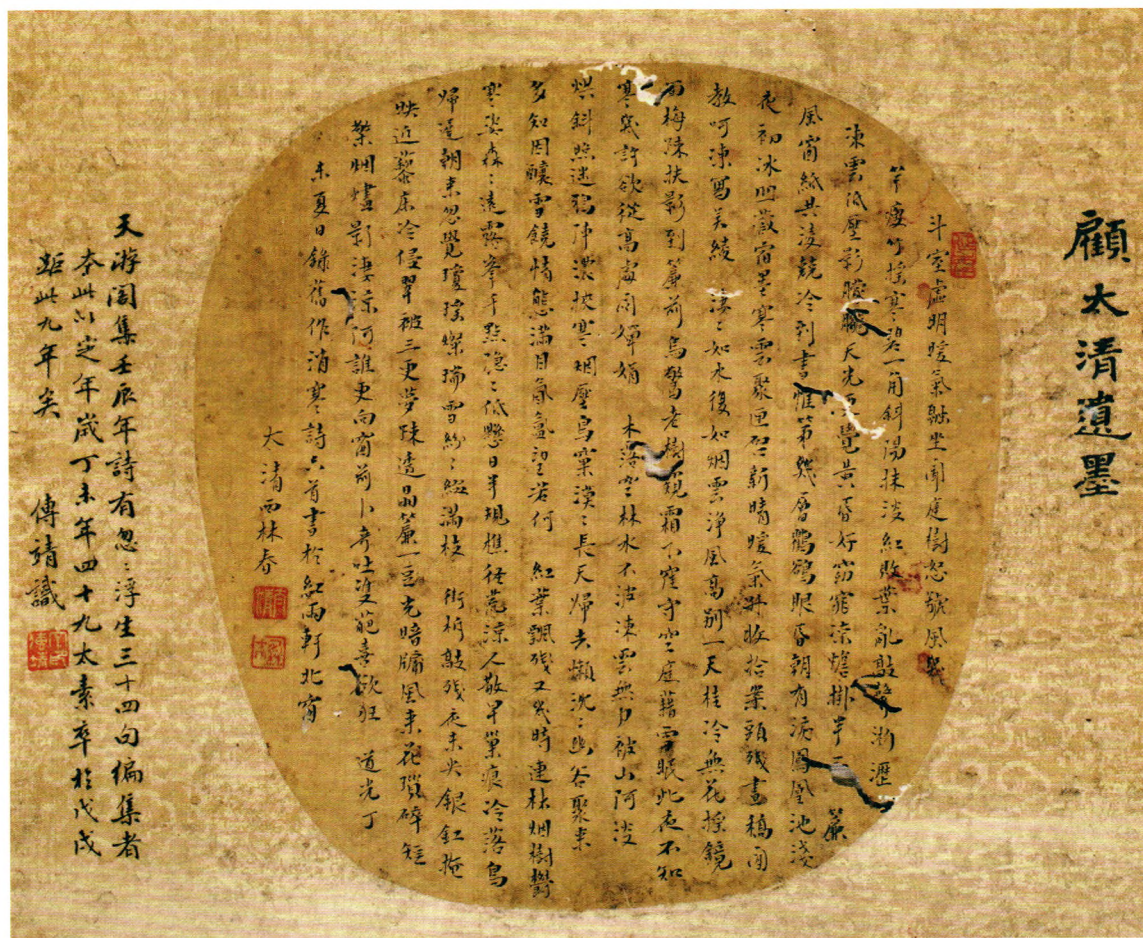 顧太清遺墨
斗室虛明暖氣融坐聞庭樹怒號風幾
竿瘦竹搖寒碧一角斜陽抹淡紅敗葉亂敲聲淅瀝
凍雲低壓影朦朧天光更覺黃昏好窈窕涼蟾掛半
簾
風窗紙共淩競冷到書帷第幾層鸜鵒眼昏朝有淚鳳凰池淺
夜初冰凹凝宿墨寒雲聚匣啓新晴暖氣升收拾案頭殘畫稿自
教呵凍寫吴綾 淒淒如水復如烟雲淨風高別一天桂冷無花搖鏡
面梅疎扶影到簾前烏驚老樹窺霜下寉守空庭藉雪眠此夜不知
寒幾許欲從高處問嬋娟 木落空林水不波凍雲無力被山河淡
烘斜照迷鴉陣濃抹寒烟壓鳥窠漠漠長天歸去懶沈沈幽谷聚來
多知因釀雪饒情態滿目氤氳望若何 紅葉飄殘又幾時連林烟樹鬱
寒姿森森遠露拳千點隱隱低懸日半規樵徑荒涼人散早巢痕冷落鳥
歸遲朝來忽覺瓊瑤燦瑞雪紛紛綴滿枝 街柝敲殘夜未央銀釭掩
映近藜床冷侵翠被三更夢疎透晶簾一豆光暗牖風來花琐碎短
檠烟燼影淒涼阿誰更向窗前卜乍吐雙葩喜欲狂 道光丁
未夏日錄舊作消寒詩六首書於紅雨軒北窗
太清西林春
天游閣集壬辰年詩有忽忽浮生三十四句編集者
本此以定年歲丁未年四十九太素卒於戊戌
距此九年矣
傅靖識